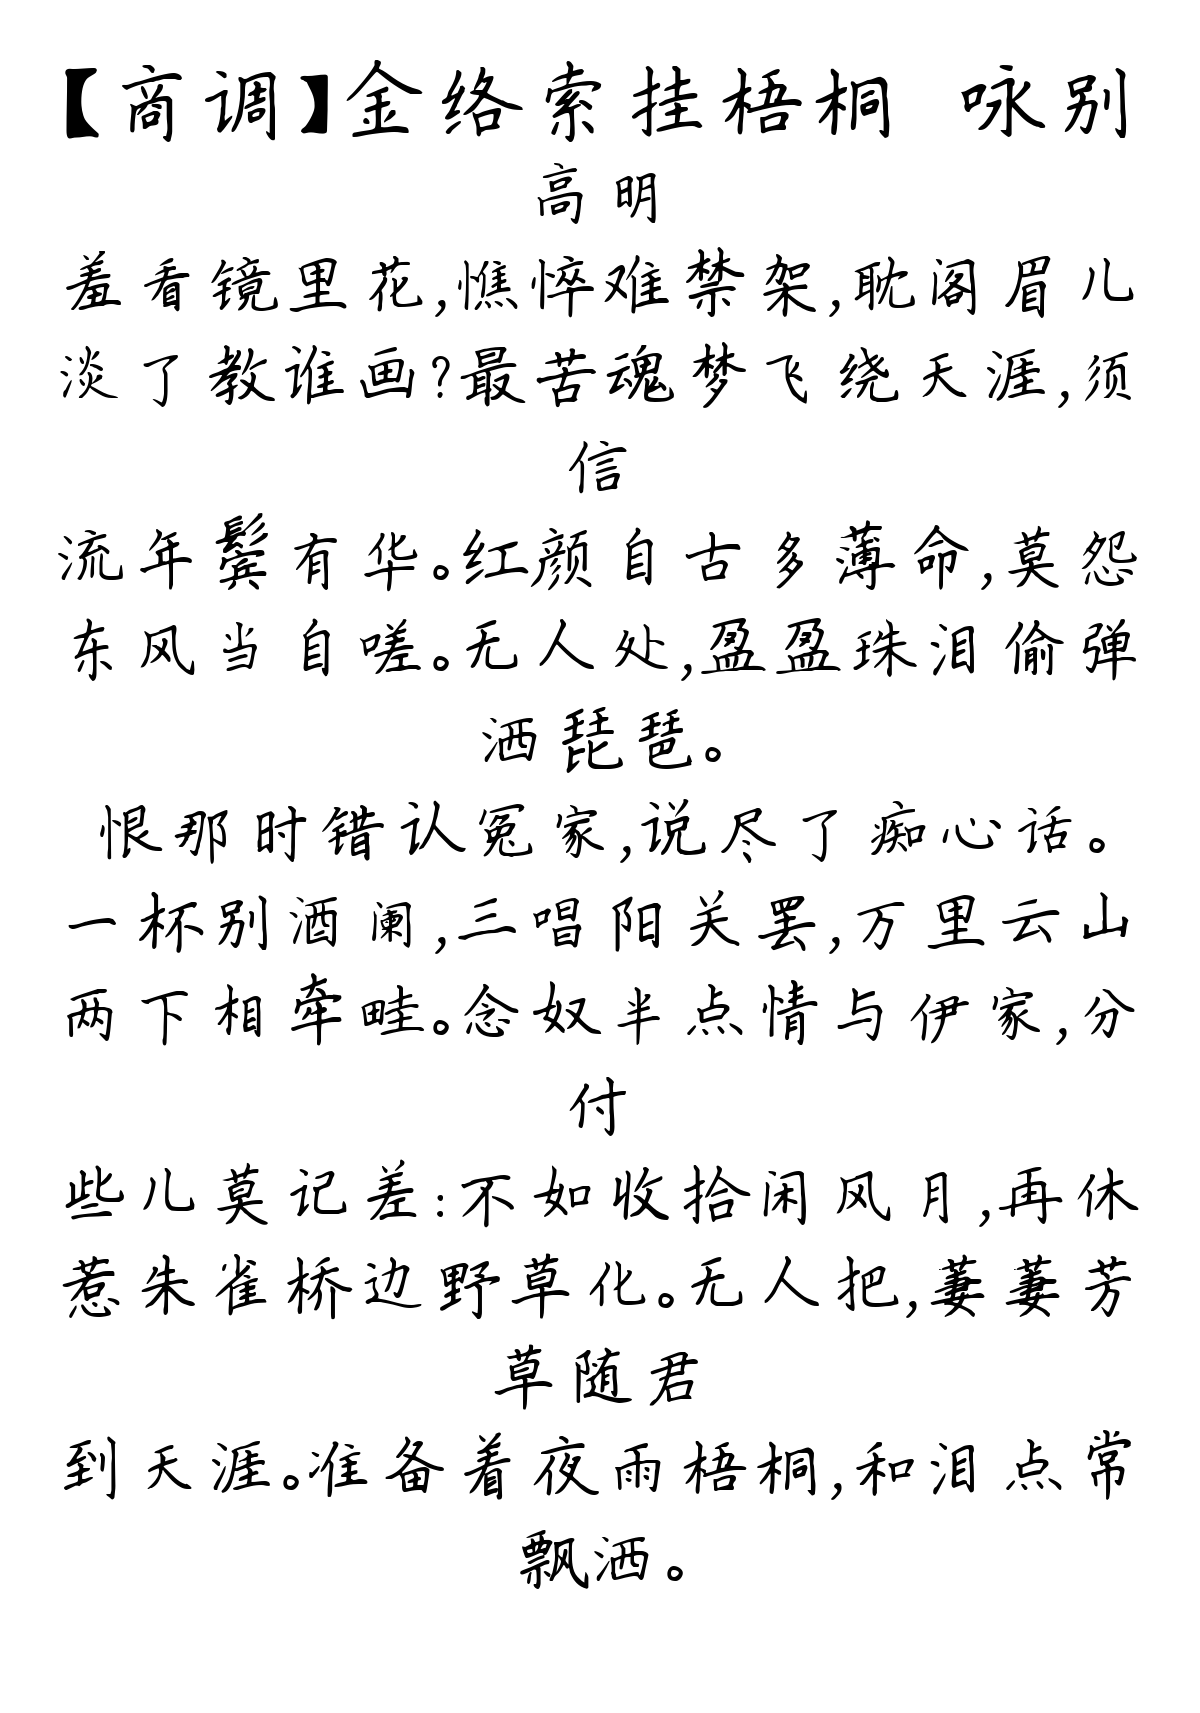 【商调】金络索挂梧桐 咏别
高明
羞看镜里花,憔悴难禁架,耽阁眉儿
淡了教谁画?最苦魂梦飞绕天涯,须
信
流年鬓有华。红颜自古多薄命,莫怨
东风当自嗟。无人处,盈盈珠泪偷弹
洒琵琶。
恨那时错认冤家,说尽了痴心话。
一杯别酒阑,三唱阳关罢,万里云山
两下相牵畦。念奴半点情与伊家,分
付
些儿莫记差:不如收拾闲风月,再休
惹朱雀桥边野草化。无人把,萋萋芳
草随君
到天涯。准备着夜雨梧桐,和泪点常
飘洒。